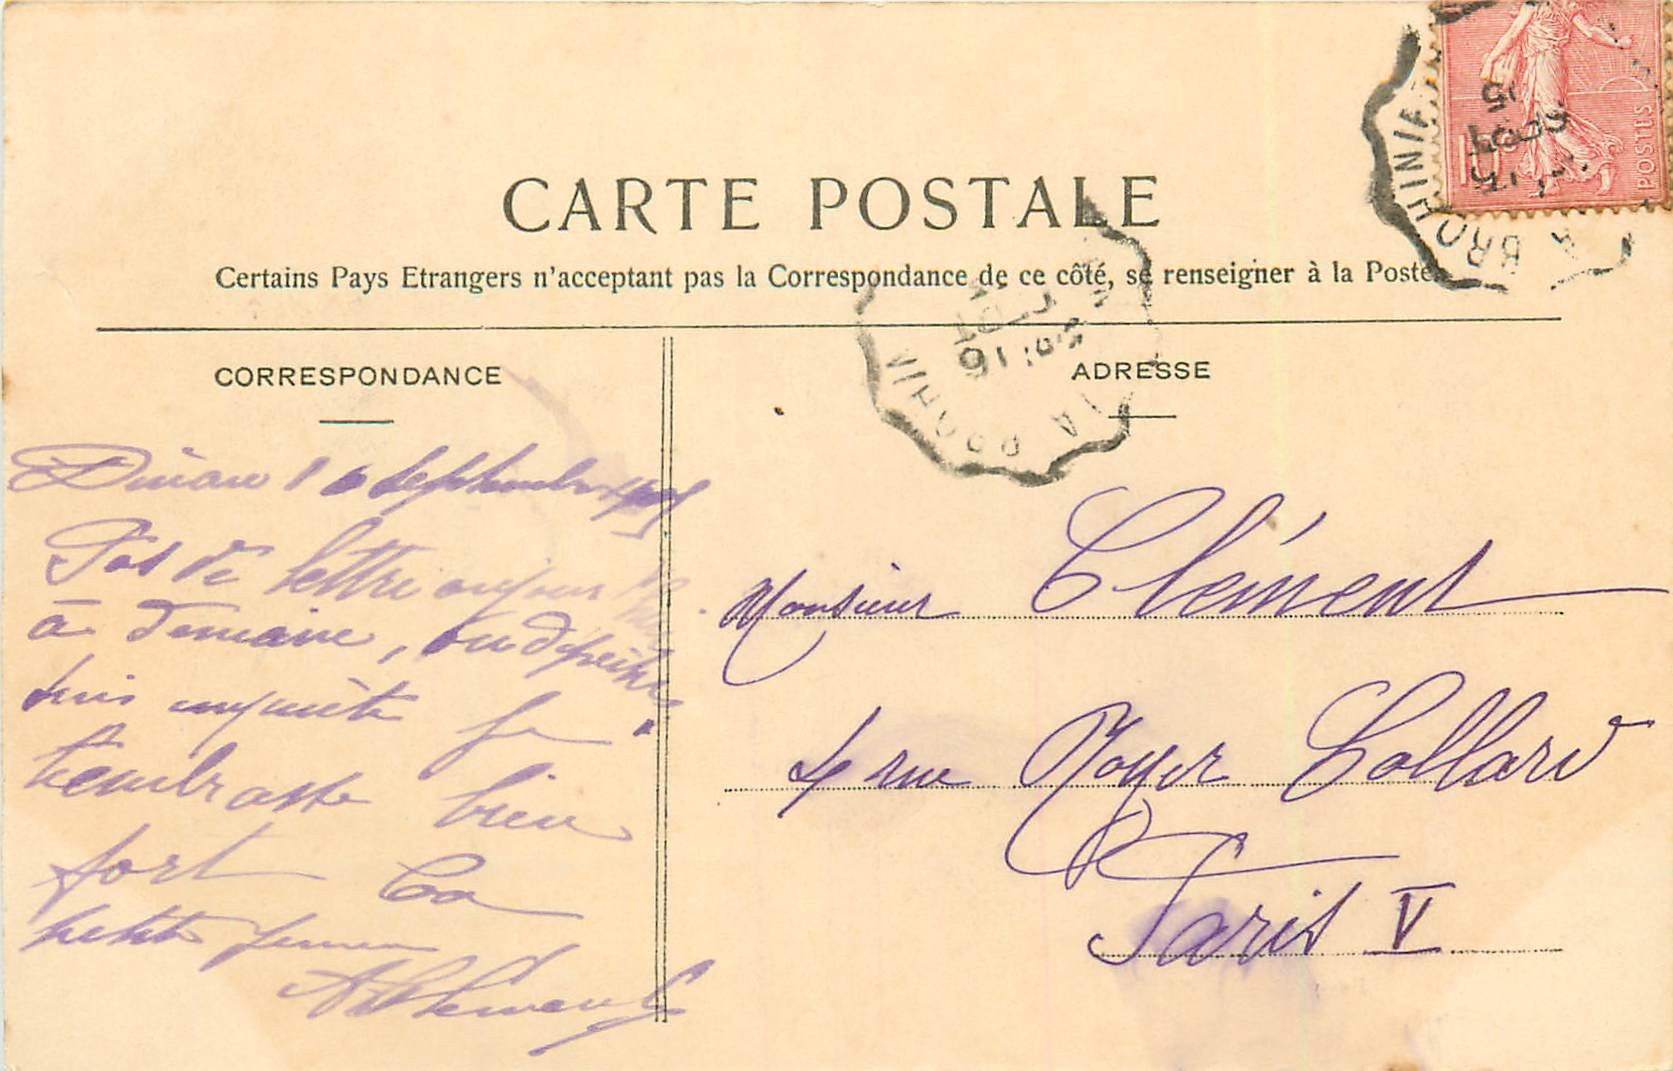 CARTE POSTALE
Certains Pays Etrangers n'acceptant pas la Correspondance de ce côté, se renseigner à la Poste
CORRESPONDANCE
ADRESSE
Dinan 10 Septembre 1905
Pas de lettre aujour
à Demain, ou dépêche
suis inquiète je
t'embrasse bien
fort Ta
petite femme
A Clément
Monsieur Clément
4 rue Royer Collard
Paris V
POSTES
10
BROHINIE
LA BROHINI